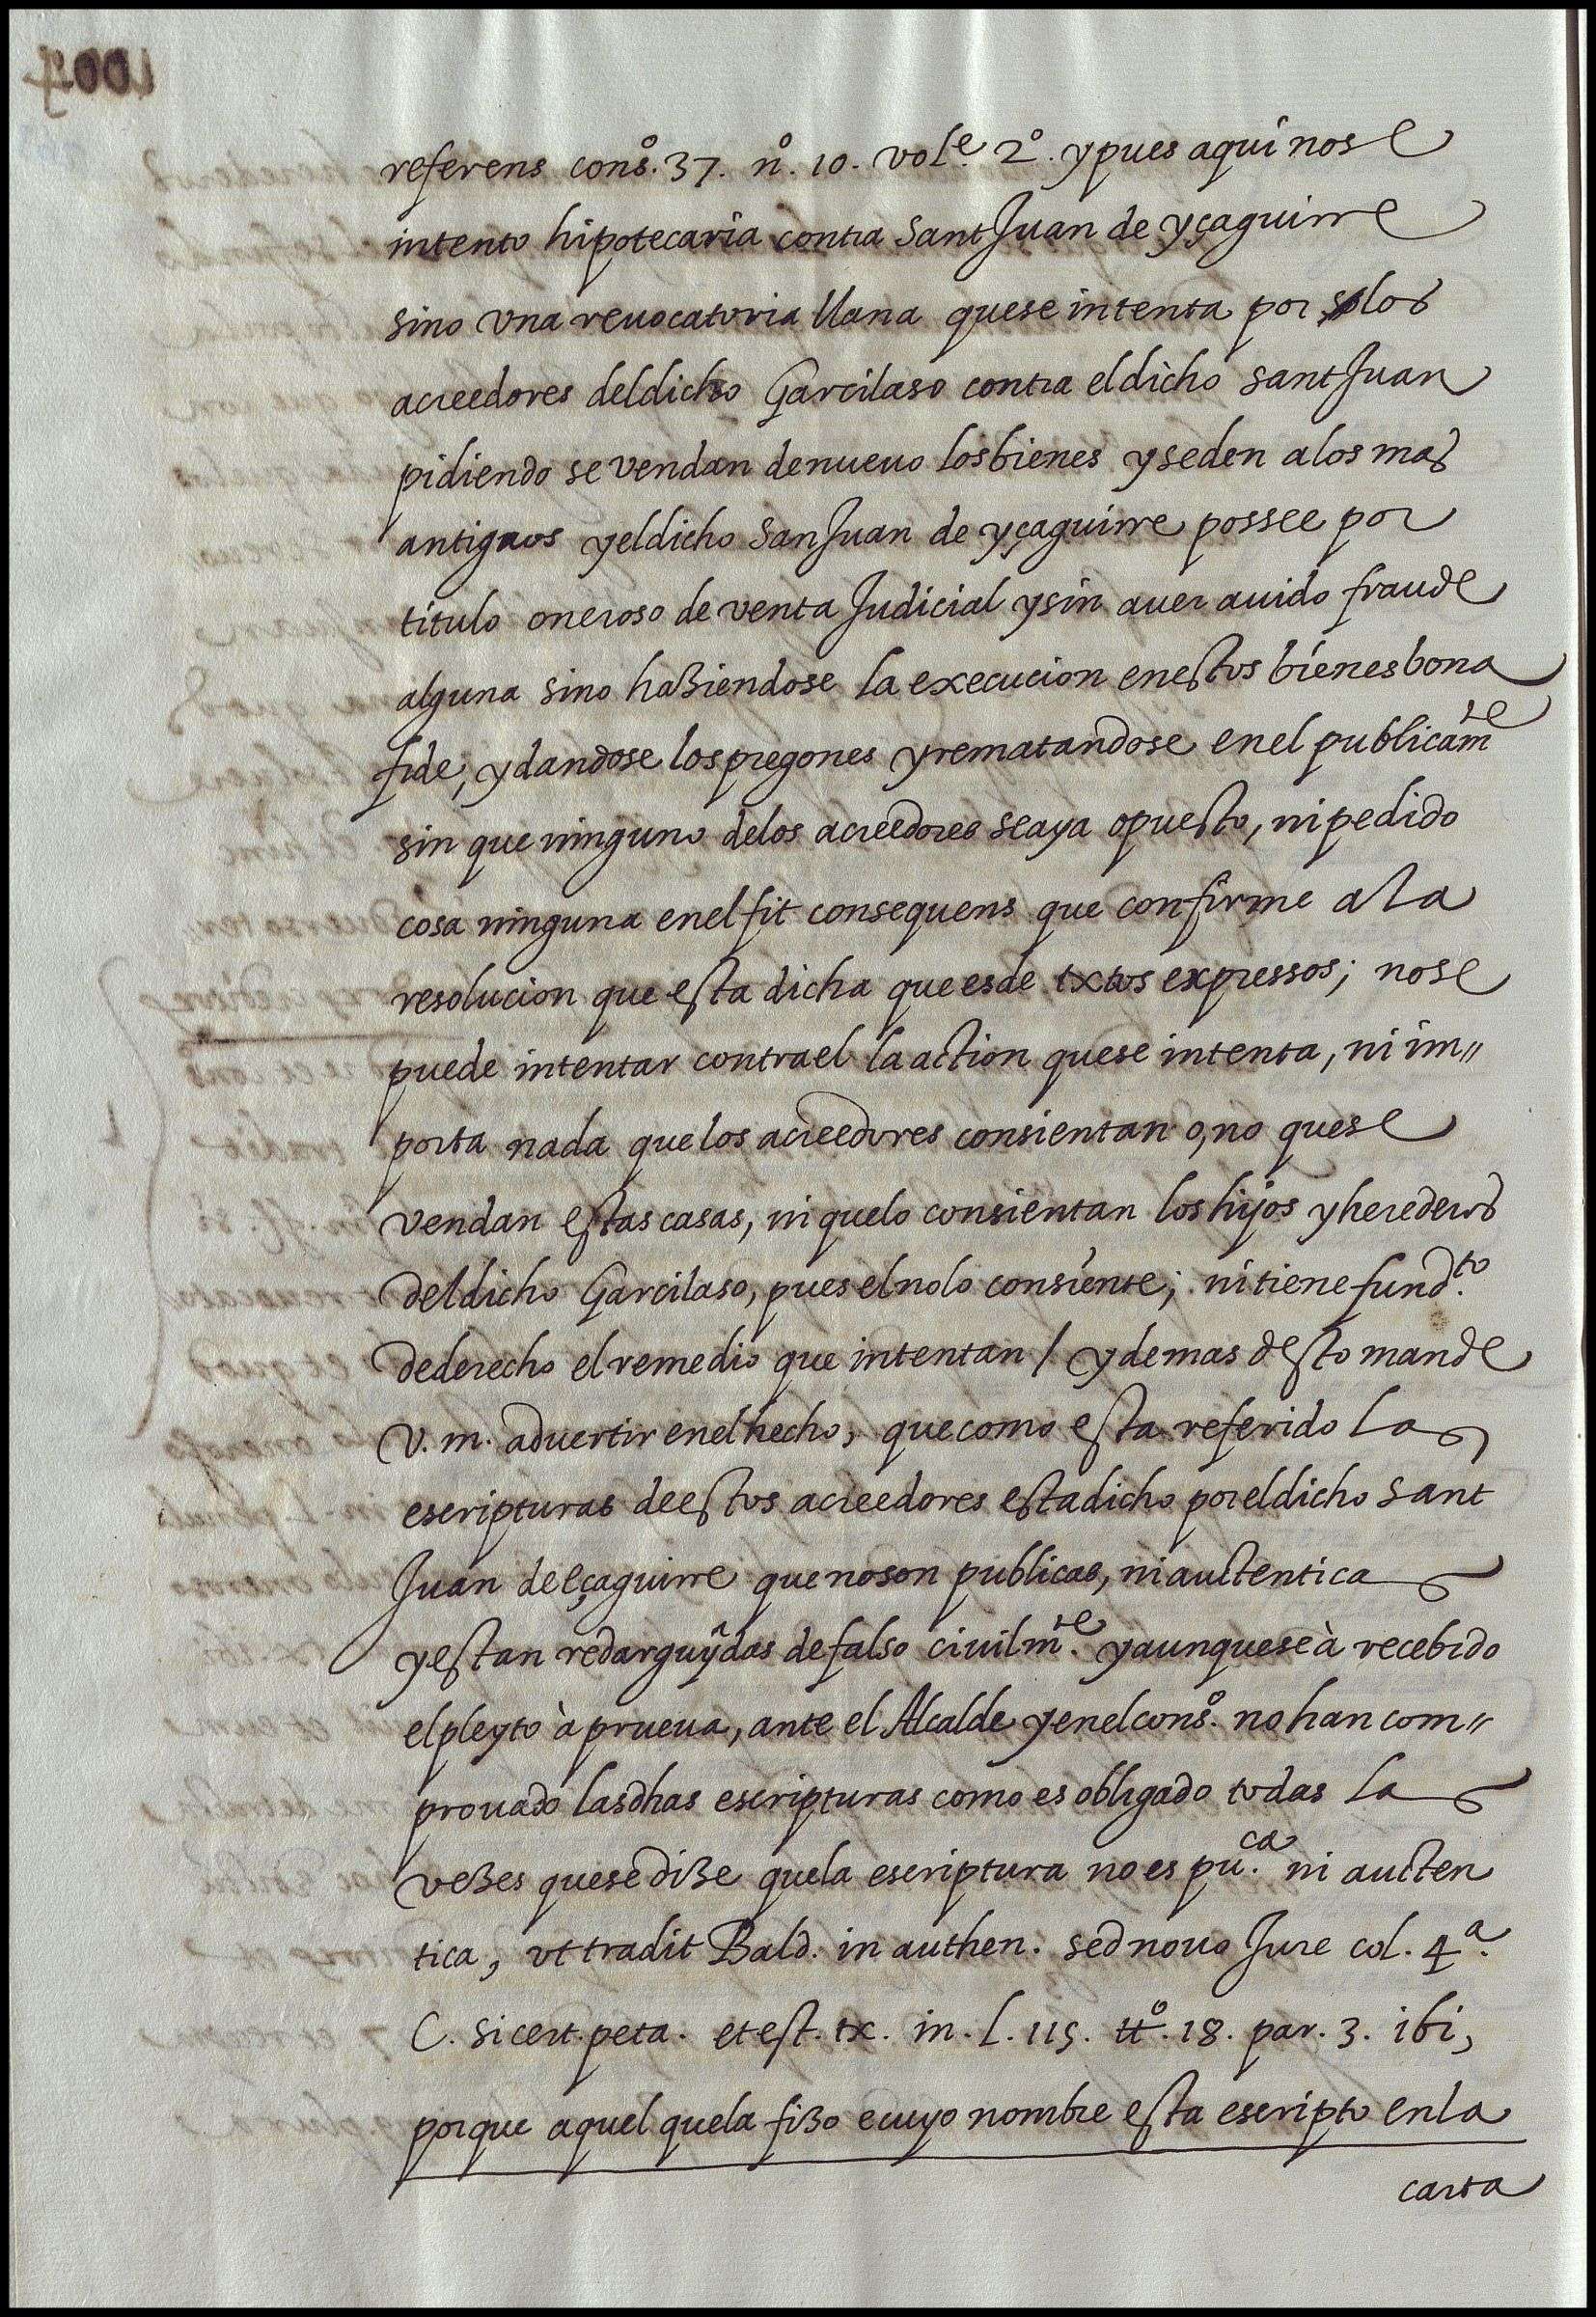 referens consº. 37. nº. 10. vole. 2º. y pues aqui no se
intento hipotecaria contra Sant Juan de yçaguirre
sino vna reuocatoria llana que se intenta por solos
acreedores del dicho Garcilaso contra el dicho Sant Juan
pidiendo se vendan de nueuo los bienes y se den a los mas
antiguos y el dicho San Juan de yçaguirre possee por
titulo oneroso de venta Judicial y sin auer auido fraude
alguna sino haziendose la execucion en estos bienes bona
fide, y dandose los pregones y rematandose en el publicamte
sin que ninguno de los acreedores se aya opuesto, ni pedido
cosa ninguna en el fit consequens que confirme a la
resolucion que esta dicha que es de textos expressos; no se
puede intentar contra el la action que se intenta, ni im=
porta nada que los acreedores consientan o, no que se
vendan estas casas, ni que lo consientan los hijos y herederos
del dicho Garcilaso, pues el no lo consiente; ni tiene fundto.
de derecho el remedio que intentan / y demas desto mande
V. m. aduertir en el hecho, que como esta referido las
escripturas de estos acreedores esta dicho por el dicho Sant
Juan de eçaguirre que no son publicas, ni auctenticas
y estan redarguydas de falso ciuilmte. y aunque se à recebido
el pleyto à prueua, ante el Alcalde y en el consº. no han com=
prouado las dhas escripturas como es obligado todas las
vezes que se dize que la escriptura no es puca. ni aucten
tica, vt tradit Bald. in authen. sed nouo Jure col. 4ª.
C. si cert. peta. et est. tx. in. l. 115. ttº. 18. par. 3. ibi,
porque aquel que la fizo e cuyo nombre esta escripto en la
carta